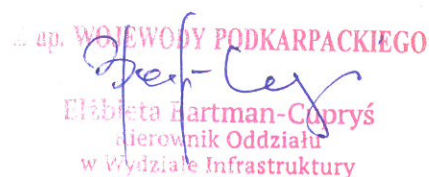 up. WOJEWODY PODKARPACKIEGO
Elżbieta Hartman-Cupryś
Kierownik Oddziału
w Wydziale Infrastruktury